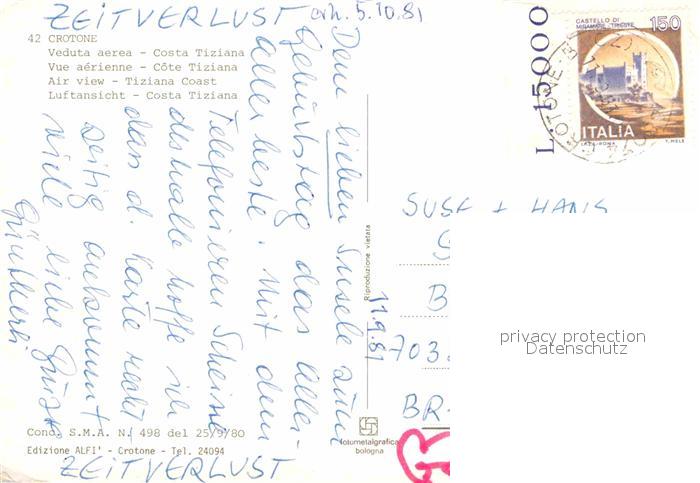 ZEITVERLUST erh. 5.10.81
42 CROTONE
Veduta aerea - Costa Tiziana
Vue aérienne - Côte Tiziana
Air view - Tiziana Coast
Luftansicht - Costa Tiziana
Dem lieben Susele zum
Geburtstag das aller-
allerbeste. Mit dem
Telefonieren Scheisse
deshalb hoffe ich
dass d. Karte recht-
zeitig ankommt
viele liebe Grüsse
Conc. S.M.A. N. 498 del 25/9/80
Edizione ALFI' - Crotone - Tel. 24094
ZEITVERLUST
Riproduzione vietata
11.9.81
fotometalgrafica
bologna
L. 15000
CASTELLO DI
MIRAMARE - TRIESTE
150
ITALIA
I.P.Z.S.-ROMA
T. MELE
SUSE + HANS
S
B
703
BR
privacy protection
Datenschutz